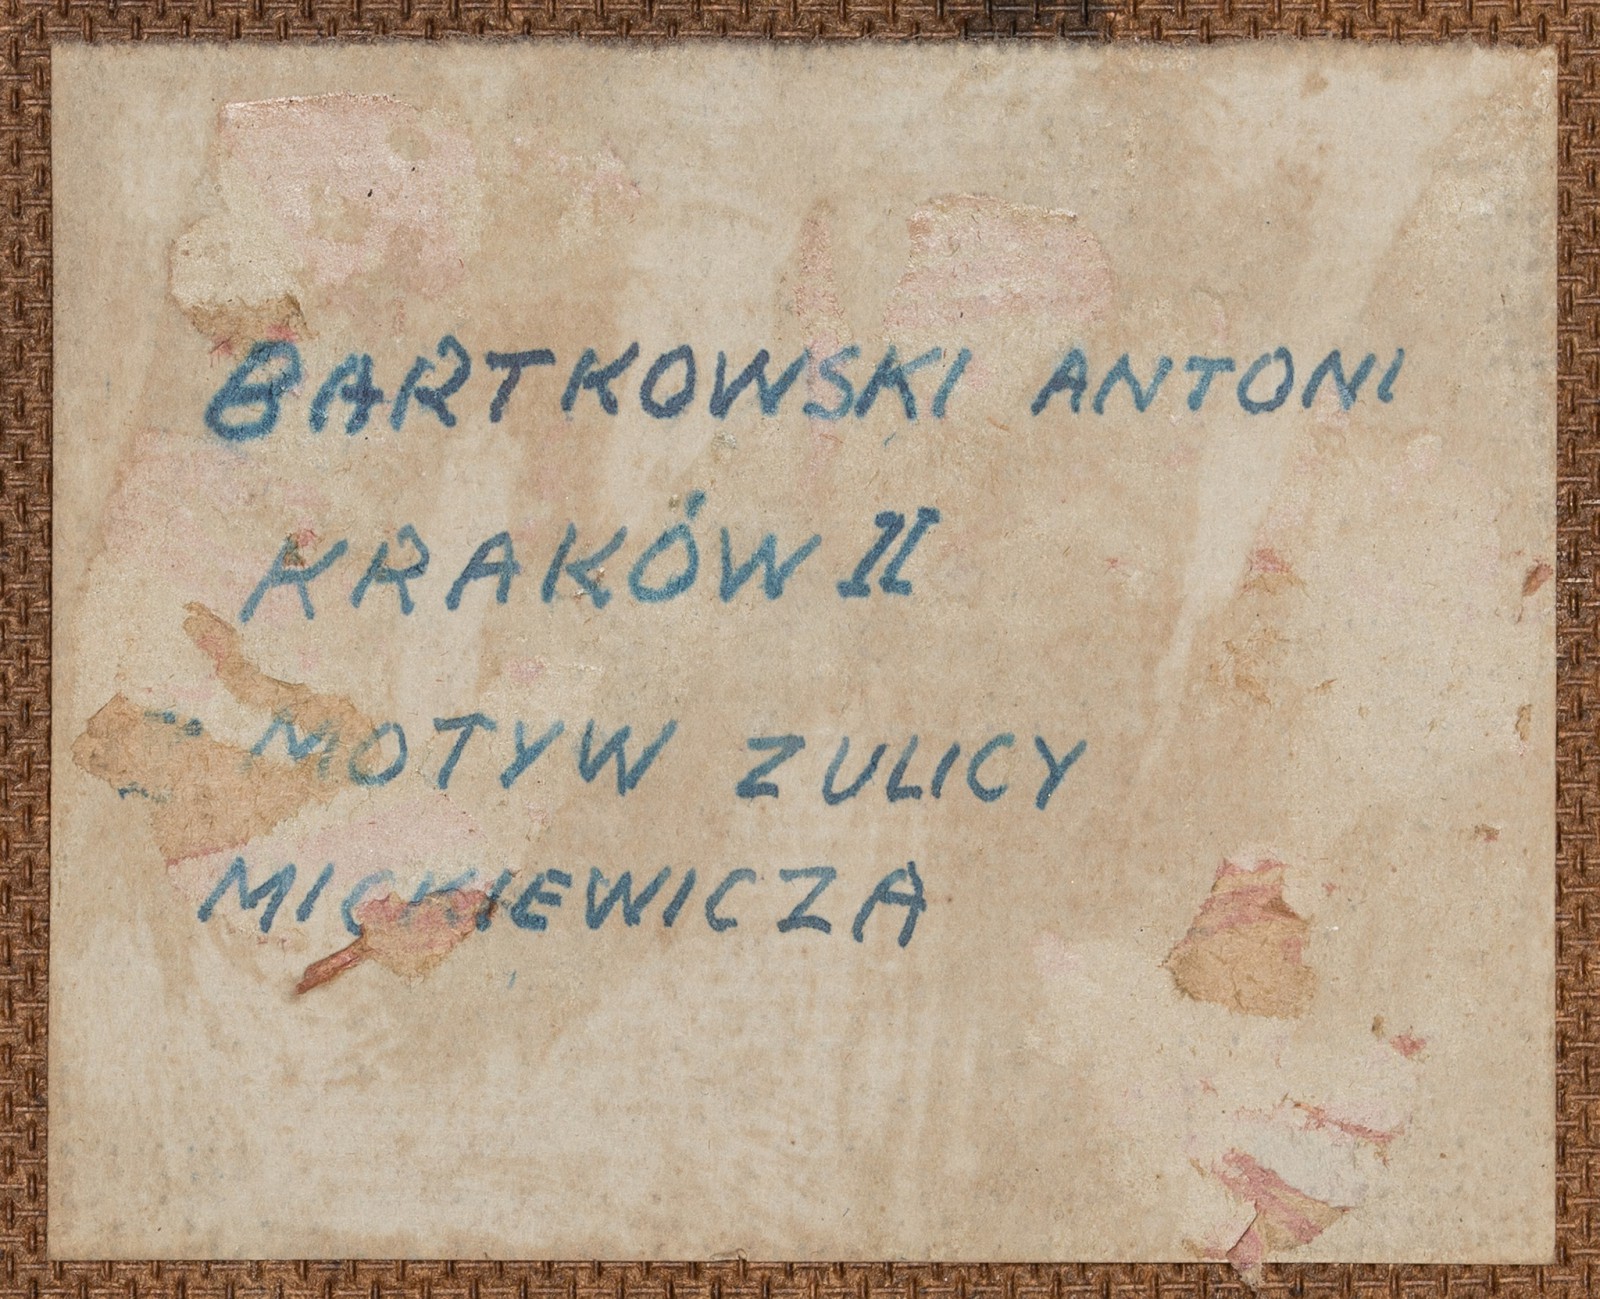 BARTKOWSKI ANTONI
KRAKÓW II
MOTYW Z ULICY
MICKIEWICZA